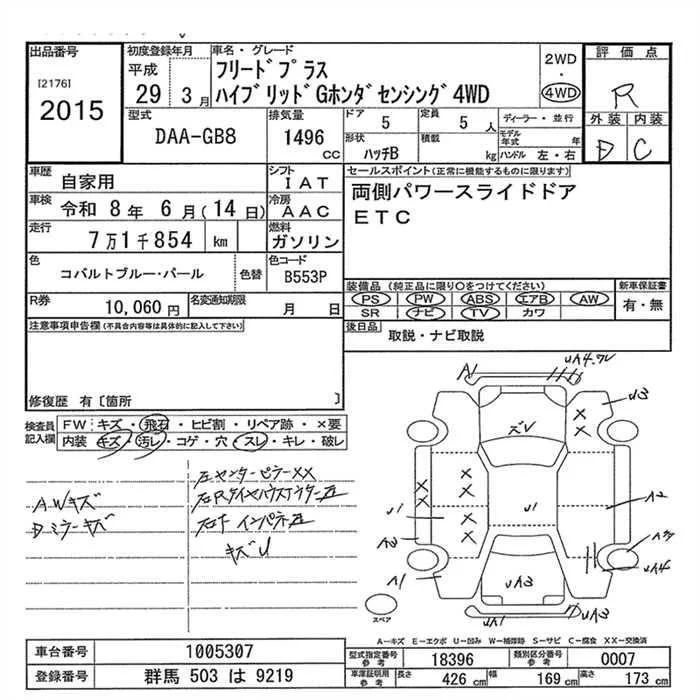 出品番号
[2176]
2015
初度登録年月
平成
29 3月
車名・グレード
フリードプラス
ハイブリッドGホンダセンシング4WD
2WD
・
4WD
評価点
R
外装 内装
D C
型式
DAA-GB8
排気量
1496
CC
ドア 5
定員 5 人
形状
ハッチB
積載
kg
ディーラー・並行
モデル年式 年
ハンドル 左・右
車歴 自家用
シフト
IAT
車検 令和 8年 6月(14日)
冷房
AAC
走行 7万1千854 km
燃料
ガソリン
色 コバルトブルー・パール
色替
色コード
B553P
R券 10,060円
名変通知期限
月 日
セールスポイント(正常に機能するものに限ります)
両側パワースライドドア
ETC
装備品(純正品に限り○をつけてください)
PS PW ABS エアB AW
SR ナビ TV カワ
新車保証書
有・無
後日品 取説・ナビ取説
注意事項申告欄(不具合内容等は具体的に記入して下さい)
修復歴 有〔箇所 〕
検査員
記入欄
FW キズ・飛石・ヒビ割・リペア跡・×要
内装 キズ・汚レ・コゲ・穴・スレ・キレ・破レ
AWキズ
Dミラーキズ
左センターピラーXX
キズU
A1
UA4.ワレ
U3
ズレ
U1
U1
A2
A2
A1
UA3
UA4
UA3
スペア
A―キズ E―エクボ U―凹み W―補修跡 S―サビ C―腐食 XX―交換済
車台番号 1005307
登録番号 群馬 503 は 9219
型式指定番号
参考
18396
類別区分番号
参考
0007
車庫証明用
参考
長さ 426 cm
幅 169 cm
高さ 173 cm